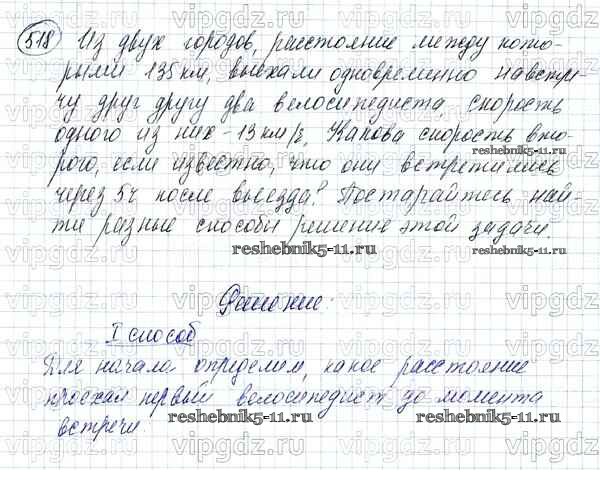 518 Из двух городов, расстояние между кото-
рыми 135 км, выехали одновременно навстре-
чу друг другу два велосипедиста, скорость
одного из них - 13 км/ч. Какова скорость вто-
рого, если известно, что они встретились
через 5ч после выезда? Постарайтесь най-
ти разные способы решения этой задачи.
reshebnik5-11.ru
Решение:
I способ
Для начала определим, какое расстояние
проехал первый велосипедист до момента
встречи
reshebnik5-11.ru
vipgdz.com